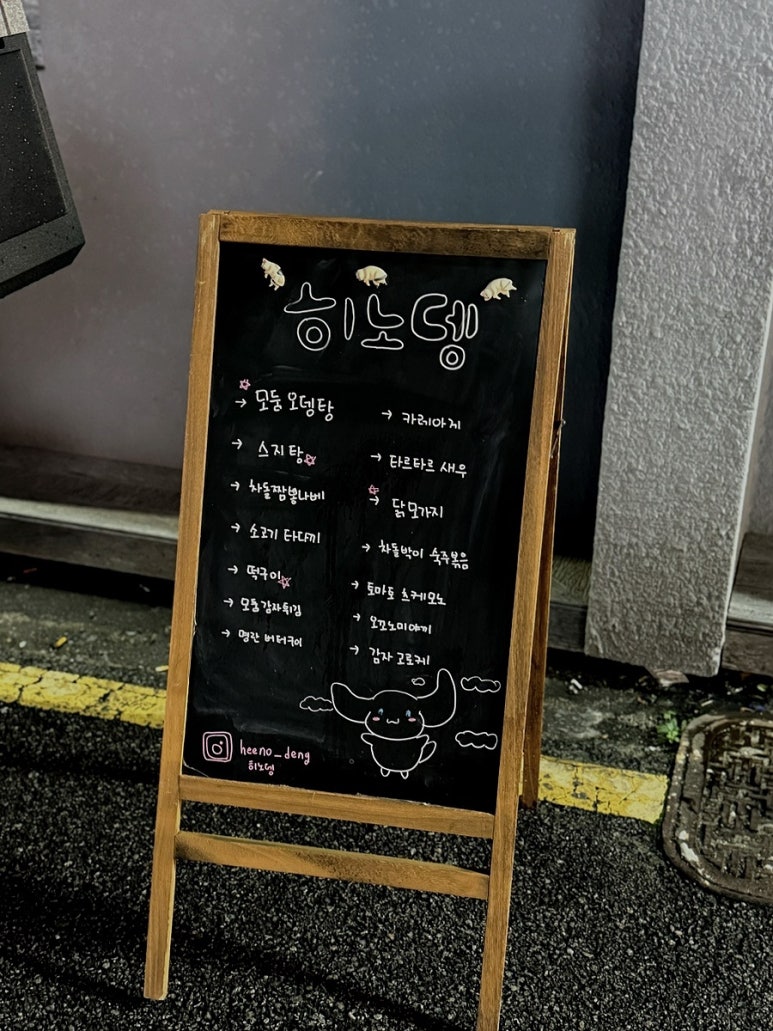 히노뎅
→ 모둠 오뎅탕
→ 스지탕
→ 차돌짬뽕나베
→ 소고기 타다끼
→ 떡구이
→ 모둠감자튀김
→ 명란 버터구이
→ 카레아게
→ 타르타르 새우
→ 닭모가지
→ 차돌박이 숙주볶음
→ 토마토 츠케모노
→ 오꼬노미야끼
→ 감자 고로케
heeno_deng
히노뎅